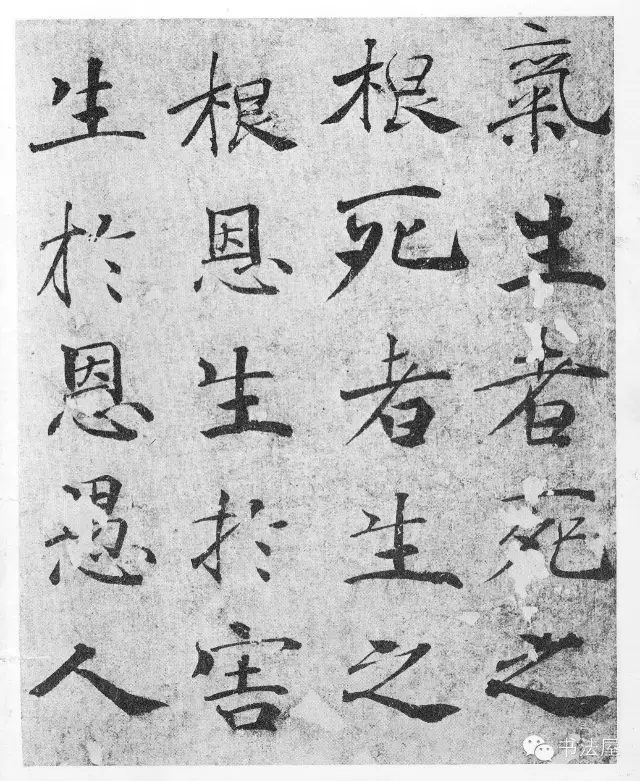 氣生者死之
根死者生之
根恩生於害
生於恩愚人
书法屋